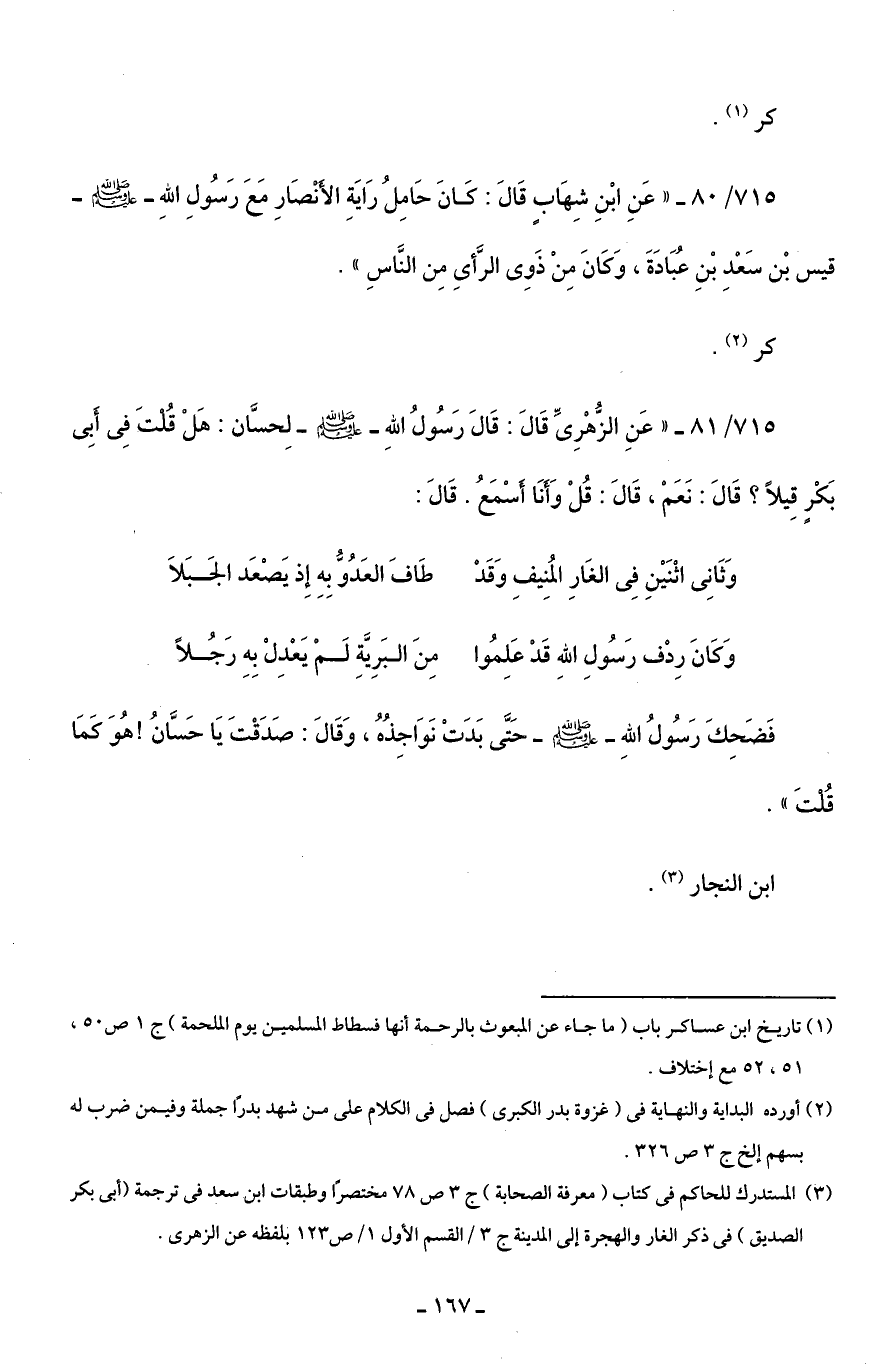 كر (١) .
٧١٥/ ٨٠ ـ « عَنِ ابْنِ شِهَابٍ قَالَ : كَـانَ حَامِلُ رَايَةِ الأَنْصَارِ مَعَ رَسُولِ اللهِ ـ ﷺ ـ
قيس بْن سَعْدِ بْنِ عُبَادَةَ ، وَكَانَ مِنْ ذَوِى الرَّأىِ مِن النَّاسِ » .
كر (٢) .
٧١٥/ ٨١ ـ « عَنِ الزُّهْرِىِّ قَالَ : قَالَ رَسُولُ اللهِ ـ ﷺ ـ لِحسَّان : هَلْ قُلْتَ فِى أَبِى
بَكْرٍ قِيلاً ؟ قَالَ : نَعَمْ ، قَالَ : قُلْ وَأَنَا أَسْمَعُ . قَالَ :
وَثَانِى اثْنَيْنِ فِى الغَارِ المُنِيفِ وَقَدْ طَافَ العَدُوُّ بِهِ إِذ يَصْعَد الجَـبَلاَ
وَكَانَ رِدْف رَسُولِ اللهِ قَدْ عَلِمُوا مِنَ الـبَرِيَّةِ لَـمْ يَعْدِلْ بِهِ رَجُـلاً
فَضَحِكَ رَسُولُ اللهِ ـ ﷺ ـ حَتَّى بَدَتْ نَوَاجِذُهُ ، وَقَالَ : صَدَقْتَ يَا حَسَّانُ ! هُوَ كَمَا
قُلْتَ » .
ابن النجار (٣) .
(١) تاريـخ ابن عسـاكـر باب ( ما جـاء عن المبعوث بالرحمة أنها فسطاط المسلميـن يوم الملحمة ) ج ١ ص٥٠ ،
٥١ ، ٥٢ مع إختلاف .
(٢) أورده البداية والنهـاية فى ( غزوة بدر الكبرى ) فصل فى الكلام على مـن شهد بدرًا جملة وفيـمن ضرب له
بسهم إلخ ج ٣ ص ٣٢٦ .
(٣) المستدرك للحاكم فى كتاب ( معرفة الصحابة ) ج ٣ ص ٧٨ مختصرًا وطبقات ابن سعد فى ترجمة (أبى بكر
الصديق ) فى ذكر الغار والهجرة إلى المدينة ج ٣ / القسم الأول ١/ ص١٢٣ بلفظه عن الزهرى .
ـ ١٦٧ ـ